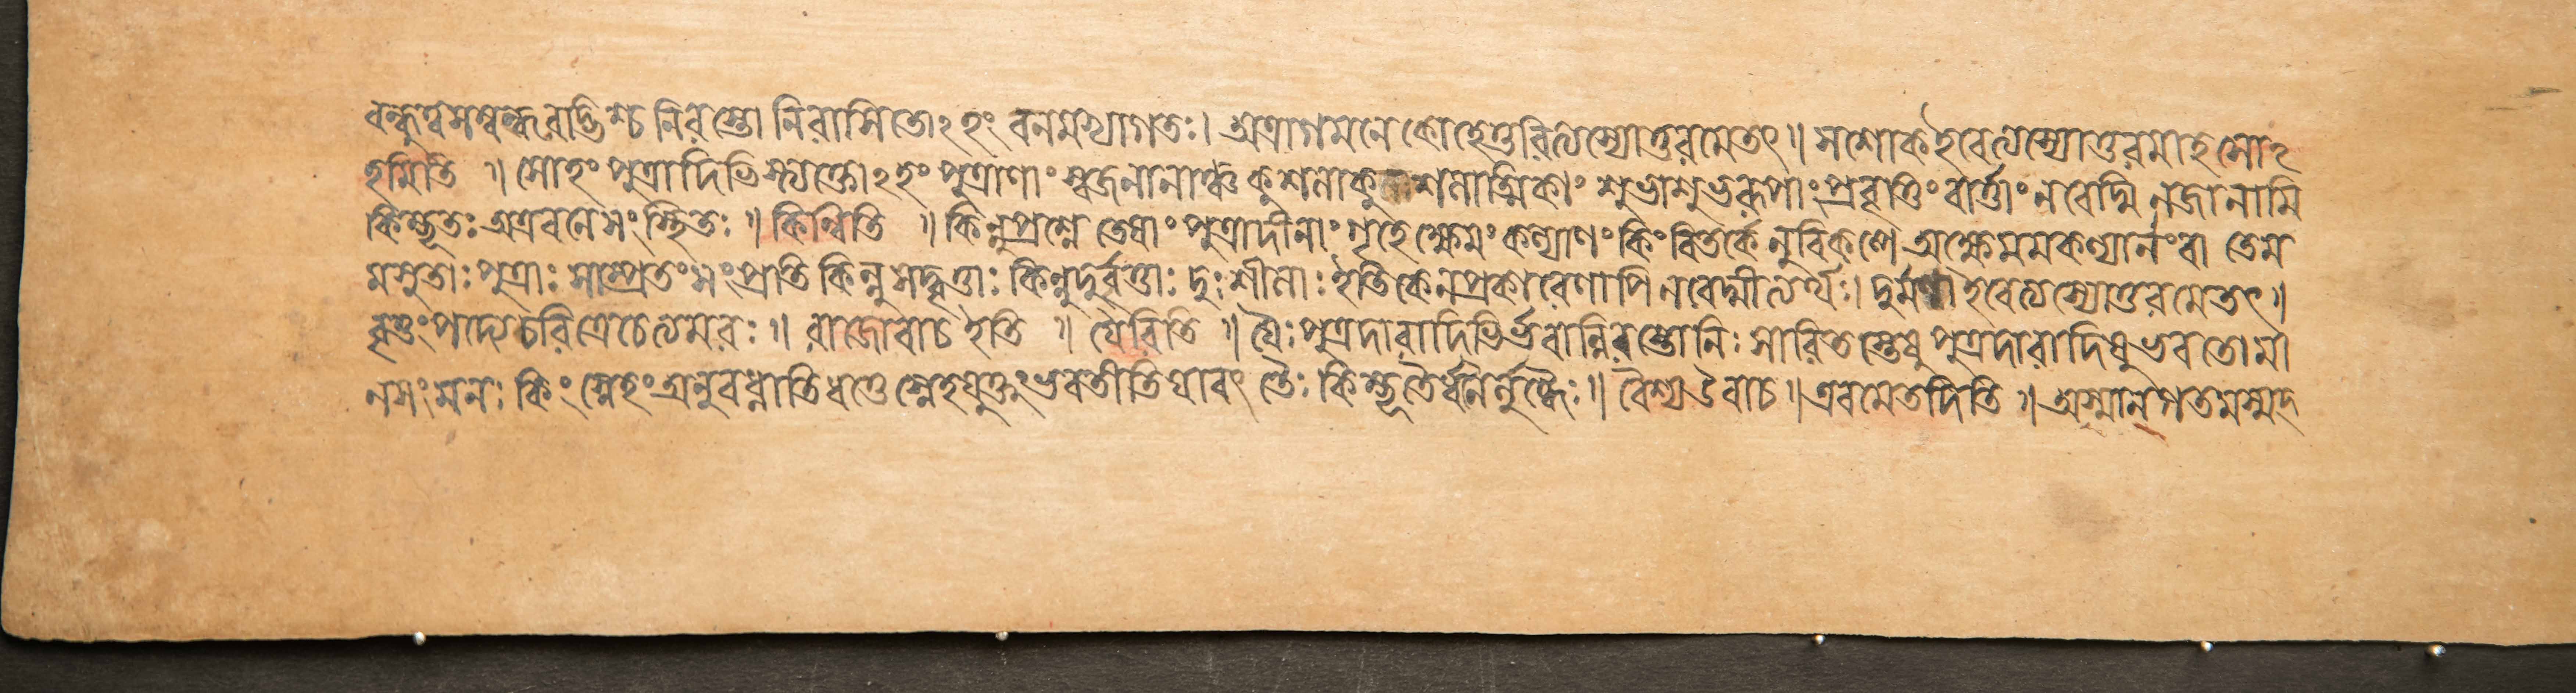 বন্ধুত্বসম্বন্ধবদ্ভিশ্চ নিরস্তো নিরাসিতোঽহং বনমভ্যাগতঃ। অত্রাগমনে কোহেতুরিত্যস্যোত্তরমেতৎ॥ সশোকইবেত্যস্যোত্তরমাহ সোঽ
হমিতি ॥ সোহং পুত্রাদিভিস্ত্যক্তোঽহং পুত্রাণাং স্বজনানাঞ্চ কুশলাকুশলাত্মিকাং শুভাশুভরূপাং প্রবৃত্তিং বার্ত্তাং নবেদ্মি নজানামি
কিম্ভূতঃ অত্রবনেসংস্থিতঃ ॥ কিন্ন্বিতি ॥ কিন্নুপ্রশ্নে তেষাং পুত্রাদীনাং গৃহেক্ষেমং কল্যাণং কিং বিতর্কে নুবিকল্পে অক্ষেমমকল্যানং বা তেম
মসুতাঃ পুত্রাঃ সাম্প্রতং সংপ্রতি কিন্নু সদ্বৃত্তাঃ কিন্নুদুর্বৃত্তাঃ দুঃশীলাঃ ইতিকেনপ্রকারেণাপি নবেদ্মীত্যর্থঃ। দুর্মণা ইবেত্যস্যোত্তরমেতৎ॥
বৃত্তং পদ্যেচরিত্রেচেত্যমরঃ ॥ রাজোবাচ ইতি ॥ যৈরিতি ॥ যৈঃ পুত্রদারাদিভির্ভবান্নিরস্তোনিঃসারিতস্তেষু পুত্রদারাদিষু ভবতোমা
নসং মনঃ কিং স্নেহং অনুবধ্নাতি ধত্তে স্নেহযুক্তং ভবতীতিযাবৎ তৈঃ কিম্ভূতৈর্ধনৈর্লুব্ধৈঃ॥ বৈশ্য উবাচ ॥ এবমেতদিতি ॥ অস্মান্গতমস্মদ